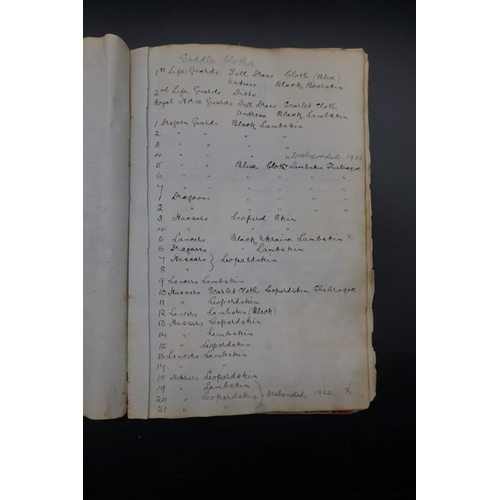 Saddle Cloths
1st Life Guards Full Dress Cloth (Blue)
Undress Black Bearskin
2nd Life Guards Ditto
Royal Horse Guards Full Dress Scarlet Cloth
Undress Black Lambskin
1 Dragoon Guards Black Lambskin
2 " " " "
3 " " " "
4 " " " " disbanded 1922
5 " " Blue Cloth Lambskin Shabraque
6 " " " " " "
7 " " " " " "
1 Dragoons " " " "
2 " " " " "
3 Hussars Leopard Skin
4 " " "
5 Lancers Black Ukraine Lambskin X
6 Dragoons " Lambskin
7 Hussars } Leopardskin
8 "
9 Lancers Lambskin
10 Hussars Scarlet Cloth Leopardskin Shabraque
11 " Leopardskin
12 Lancers Lambskin (Black)
13 Hussars Leopardskin
14 " Lambskin
15 " Leopardskin
16 Lancers Lambskin
17 " "
18 Hussars Leopardskin
19 " Lambskin
20 " Leopardskin } disbanded 1922 X
21 " "